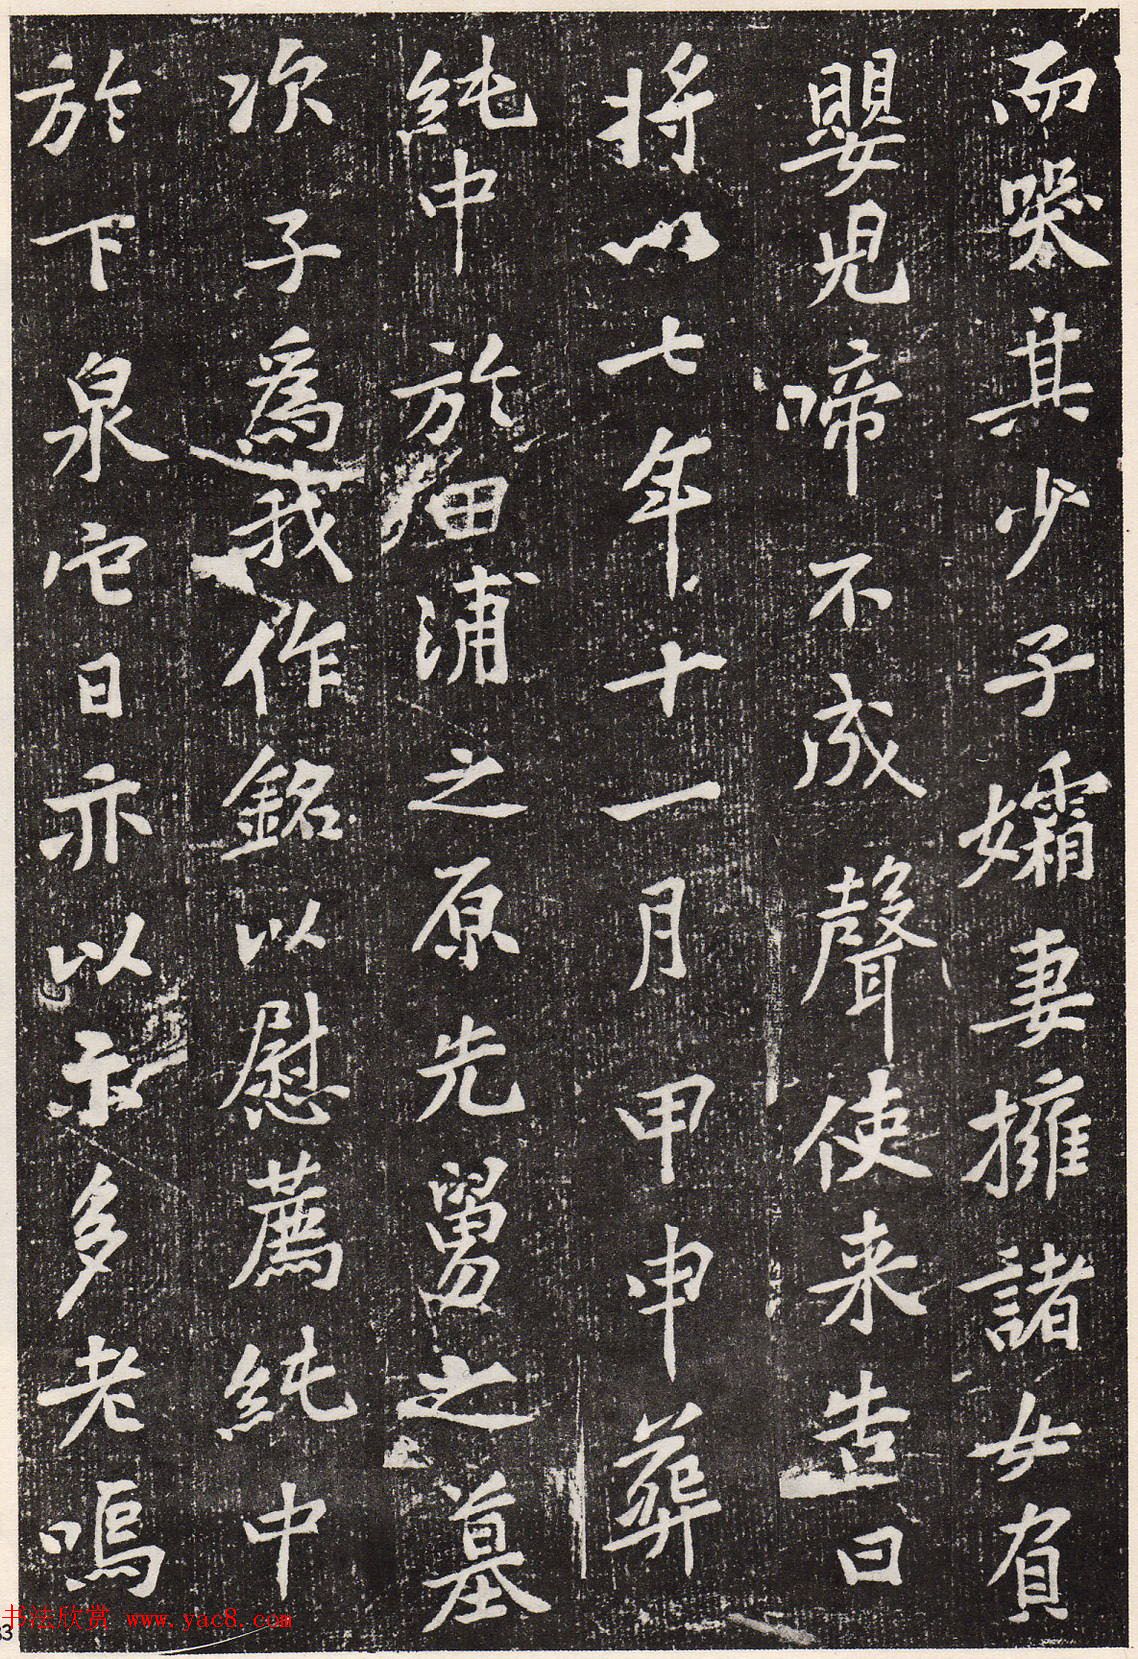 而哭其少子孀妻擁諸女負
嬰兒啼不成聲使来告曰
将以七年十一月甲申葬
純中於田浦之原先舅之墓
次子為我作銘以慰薦純中
於下泉它日亦以示多老嗚
书法欣赏 www.yac8.com
33